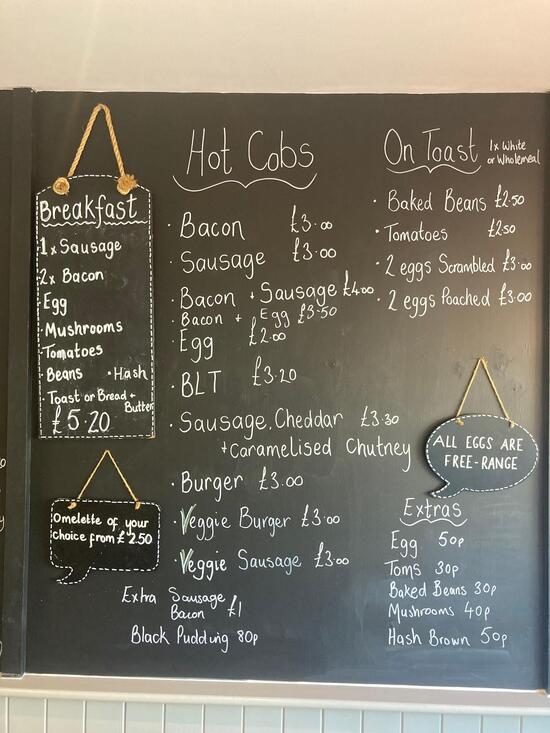 Breakfast
1 x Sausage
2 x Bacon
Egg
·Mushrooms
·Tomatoes
·Beans ·Hash
·Toast or Bread +
Butter
£5.20
Omelette of your
choice from £2.50
Hot Cobs
·Bacon £3.00
·Sausage £3.00
·Bacon + Sausage £4.00
·Bacon + Egg £3.50
·Egg £2.00
·BLT £3.20
·Sausage, Cheddar £3.30
+Caramelised Chutney
·Burger £3.00
·Veggie Burger £3.00
·Veggie Sausage £3.00
Extra Sausage
Bacon £1
Black Pudding 80p
On Toast 1x White
or Wholemeal
·Baked Beans £2.50
·Tomatoes £2.50
·2 eggs Scrambled £3.00
·2 eggs Poached £3.00
ALL EGGS ARE
FREE-RANGE
Extras
Egg 50p
Toms 30p
Baked Beans 30p
Mushrooms 40p
Hash Brown 50p